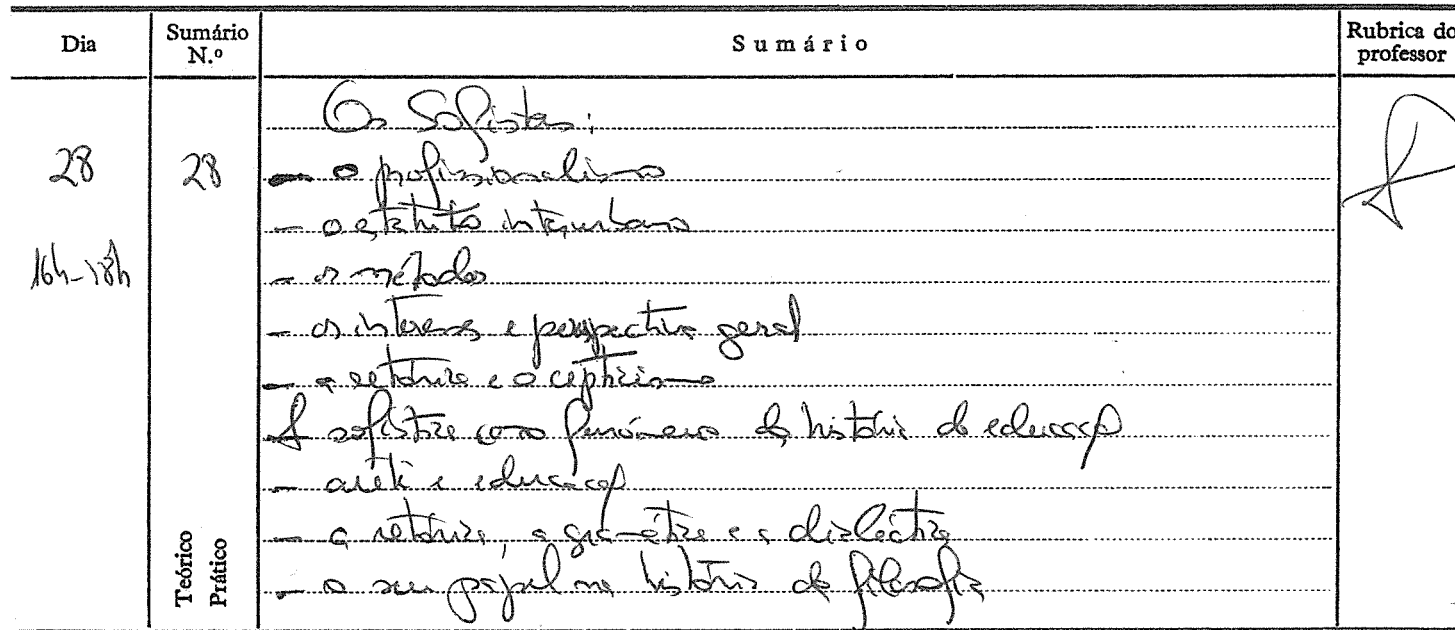 Dia Sumário N.º Sumário Rubrica do professor
Os Sofistas:
28 28 - o profissionalismo
- o estatuto interurbano
16h-18h - os métodos
- os interesses e perspectiva geral
- a retórica e o cepticismo
A sofística como fenómeno da história da educação
- aretê e educação
- a retórica, a gramática e a dialéctica
- o seu papel na história da filosofia
Teórico
Prático